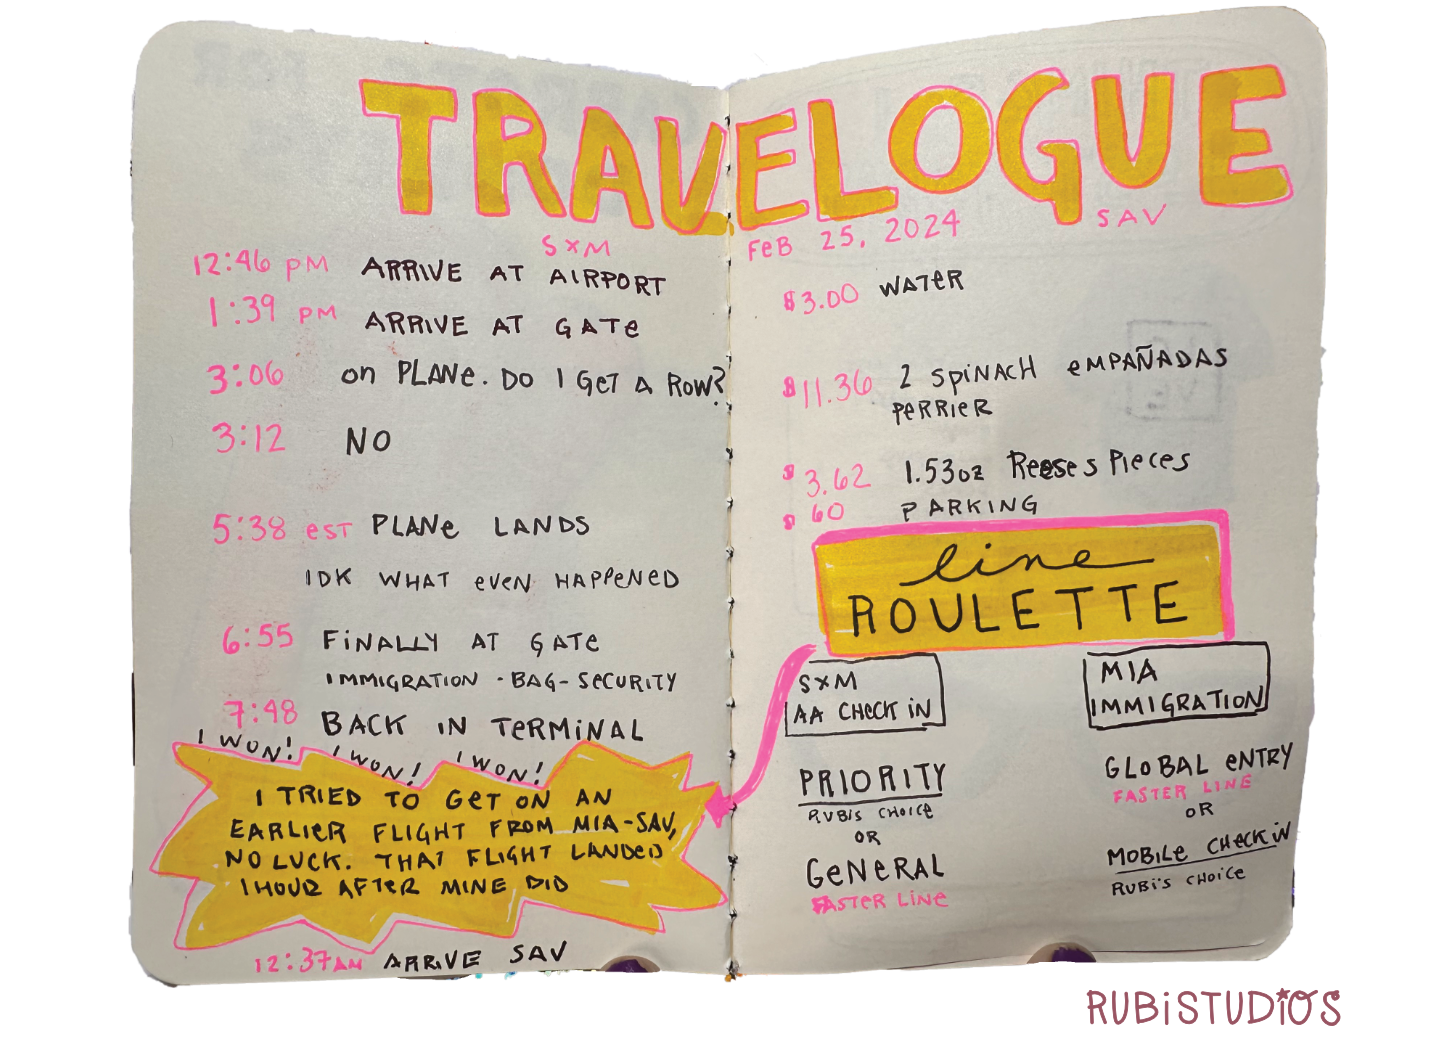 TRAVELOGUE
SXM
FeB 25, 2024
SAV
12:46 PM ARRIVE AT AIRPORT
1:39 PM ARRIVE AT GATe
3:06 on PLANe. DO I GeT A ROW?
3:12 NO
5:38 eST PLANe LANDS
IDK WHAT eVEN HAPPeNED
6:55 FiNALLY AT GATe
IMMIGRATION - BAG - SeCURITY
7:48 BACK IN TeRMINAL
I WON! I WON! I WON!
I TRIED TO GeT ON AN
EARLIER FLIGHT FROM MIA-SAV,
NO LUCK. THAT FLIGHT LANDeD
1 HOUR AFTeR MINE DID
12:37AM ARRIVE SAV
$3.00 WATeR
$11.36 2 SPiNACH eMPAÑADAS
PeRRIER
$3.62 1.53oz Reese's Pieces
$60 PARKING
line
ROULETTE
SXM
AA CHeCK iN
PRIORITY
RUBIS CHOICE
OR
GeNeRAL
FASTER LINE
MIA
IMMIGRATION
GLOBAL eNTRY
FASTER LINE
OR
MOBILe CHeCK iN
RUBI'S CHOICe
RUBiSTUDiOS